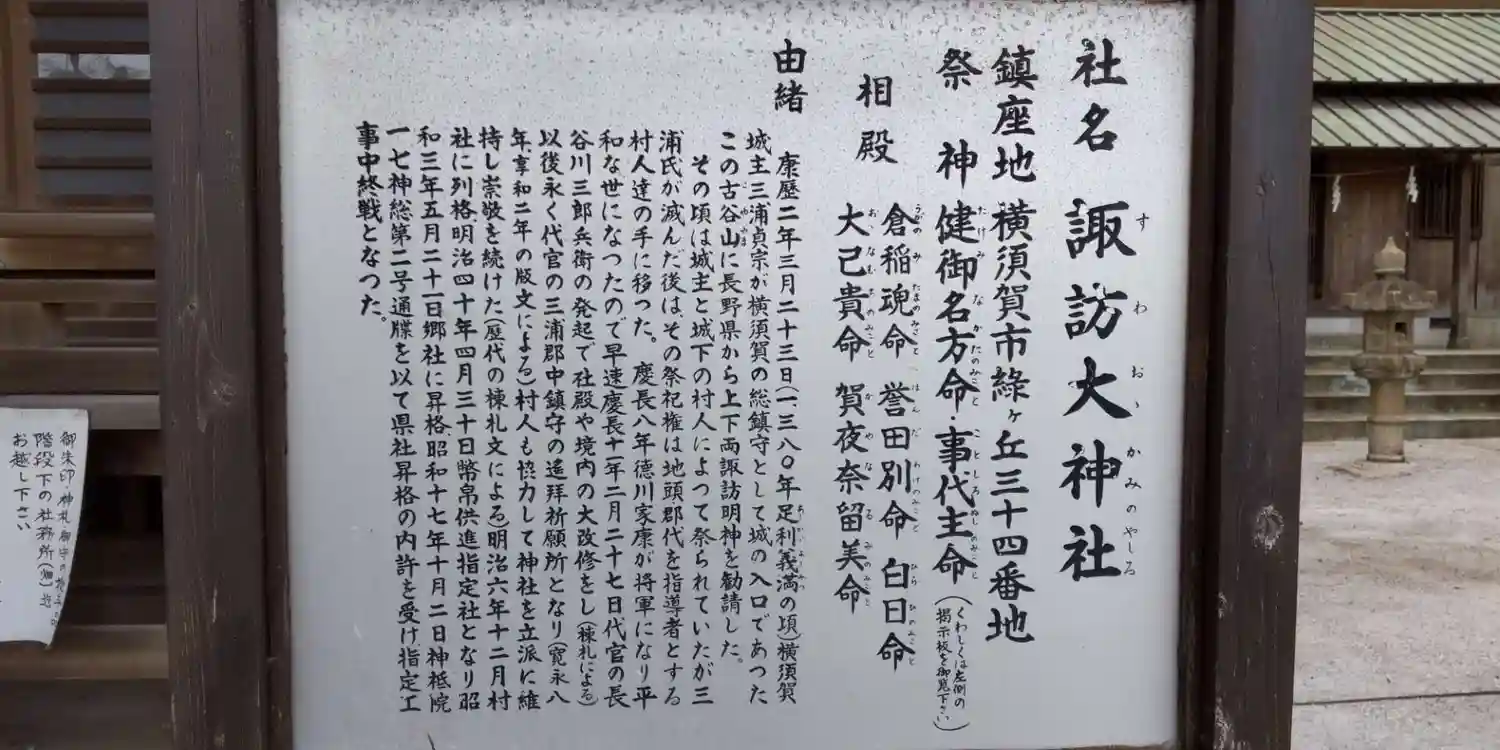 社名 諏訪大神社
すわおゝかみのやしろ
鎮座地 横須賀市緑ヶ丘三十四番地
祭神 健御名方命・事代主命(くわしくは左側の掲示板を御覧下さい)
たけみなかたのみこと ことしろぬしのみこと
相殿
倉稲魂命 誉田別命 白日命
うがのみたまのみこと はんだわけのみこと しらひのみこと
大己貴命 賀夜奈留美命
おゝなむちのみこと かやなるみのみこと
由緒
康歴二年三月二十三日(一三八〇年足利義満の頃)横須賀
城主三浦貞宗が横須賀の総鎮守として城の入口であつた
この古谷山に長野県から上下両諏訪明神を勧請した。
その頃は城主と城下の村人によつて祭られていたが三
浦氏が滅んだ後はその祭祀権は地頭郡代を指導者とする
村人達の手に移つた。慶長八年徳川家康が将軍になり平
和な世になつたので早速慶長十一年二月二十七日代官の長
谷川三郎兵衛の発起で社殿や境内の大改修をし(棟札による)
以後永く代官の三浦郡中鎮守の遙拝祈願所となり(寛永八
年享和二年の版文による)村人も協力して神社を立派に維
持し崇敬を続けた(歴代の棟札文による)明治六年十二月村
社に列格明治四十年四月三十日幣帛供進指定社となり昭
和三年五月二十一日郷社に昇格、昭和十七年十月二日神祇院
一七神総第二号通牒を以て県社昇格の内許を受け指定工
事中終戦となつた。
御朱印・神札・御守の
階段下の社務所
お越し下さい